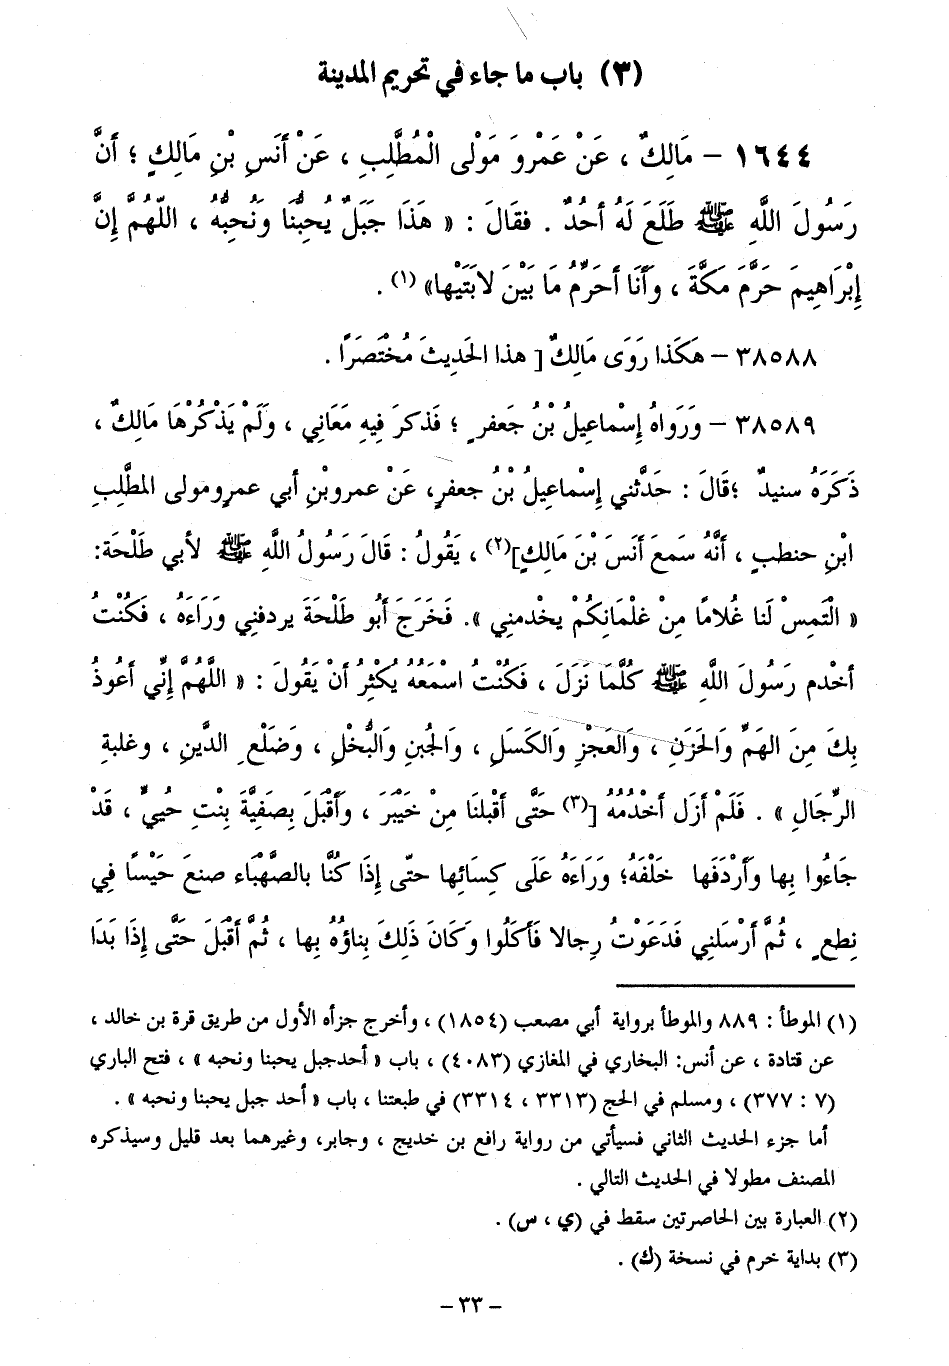 (٣) باب ما جاء في تحريم المدينة
١٦٤٤ – مَالِكٌ ، عَنْ عَمْرِوَ مَوْلى الْمُطَّلِبِ ، عَنْ أَنَسِ بْنِ مَالِكٍ ؛ أَنَّ
رَسُولَ اللَّهِ ﷺ طَلَعَ لَهُ أُحُدٌ . فقَالَ : « هَذَا جَبَلٌ يُحِبُّنَا وَنُحِبُّهُ ، اللَّهُمَّ إِنَّ
إِبْرَاهِيمَ حَرَّمَ مَكَّةَ ، وَأَنَا أُحَرِّمُ مَا بَيْنَ لابَتَيْها» (١) .
٣٨٥٨٨ – هَكَذا رَوَى مَالِكٌ [ هذا الحَديثَ مُخْتَصَرًا .
٣٨٥٨٩ – وَرَوَاهُ إِسْماعِيلُ بْنُ جَعفرٍ ؛ فَذكرَ فِيهِ مَعَانِي ، وَلَمْ يَذْكُرْهَا مَالِكٌ ،
ذَكَرَهُ سنيدٌ ؛قَالَ : حَدَّثني إِسْماعِيلُ بْنُ جعفرٍ، عَنْ عمروبْنِ أبي عمرٍومولى المطَّلِبِ
ابْنِ حنطبٍ ، أَنَّهُ سَمعَ أَنَسَ بْنَ مَالِكٍ](٢) ، يَقُولُ : قَالَ رَسُولُ اللَّهِ ﷺ لأبي طَلْحَة:
« الْتَمِسْ لَنا غُلامًا مِنْ غلْمَانِكُمْ يخْدمنِي ». فَخَرَجَ أَبُو طَلْحَةَ يردفنِي وَرَاءَهُ ، فَكُنْتُ
أخْدم رَسُولَ اللَّهِ ﷺ كُلَّمَا نَزَلَ ، فَكُنْتُ اسْمَعُهُ يُكْثِرُ أَنْ يَقُولَ : « اللَّهُمَّ إِنِّي أَعُوذُ
بِكَ مِنَ الهَمِّ وَالحَزَنِ ، وَالعَجْزِ وَالكَسَلِ ، وَالجُبنِ وَالبُخْلِ ، وَضَلْعِ الدَّينِ ، وغلبةِ
الرِّجَالِ » . فَلَمْ أزَل أَخْدُمُهُ [(٣) حَتَّى أَقْبلنَا مِنْ خَيْبَرَ ، وَأَقْبَلَ بِصَفِيَّةَ بِنْتِ حُييٍّ ، قَدْ
جَاءُوا بِها وَأَرْدَفَها خَلْفَهُ؛ وَرَاءَهُ عَلَى كِسَائِها حتّى إِذَا كُنَّا بالصَّهْبَاء صنعَ حَيْسًا فِي
نِطعٍ ، ثُمَّ أَرْسَلنِي فَدَعَوْتُ رِجالا فَأَكَلُوا وَكَانَ ذَلِكَ بِناؤُهُ بِها ، ثُمَّ أَقْبَلَ حَتَّى إِذَا بَدَا
(١) الموطأ : ٨٨٩ والموطأ برواية أبي مصعب (١٨٥٤) ، وأخرج جزأه الأول من طريق قرة بن خالد ،
عن قتادة ، عن أنس: البخاري في المغازي (٤٠٨٣) ، باب « أحدجبل يحبنا ونحبه » ، فتح الباري
(٧ : ٣٧٧) ، ومسلم في الحج (٣٣١٣ ، ٣٣١٤) في طبعتنا ، باب « أحد جبل يحبنا ونحبه » .
أما جزء الحديث الثاني فسيأتي من رواية رافع بن خديج ، وجابر، وغيرهما بعد قليل وسيذكره
المصنف مطولا في الحديث التالي .
(٢) العبارة بين الحاصرتين سقط في (ي ، س) .
(٣) بداية خرم في نسخة (ك) .
– ٣٣ –